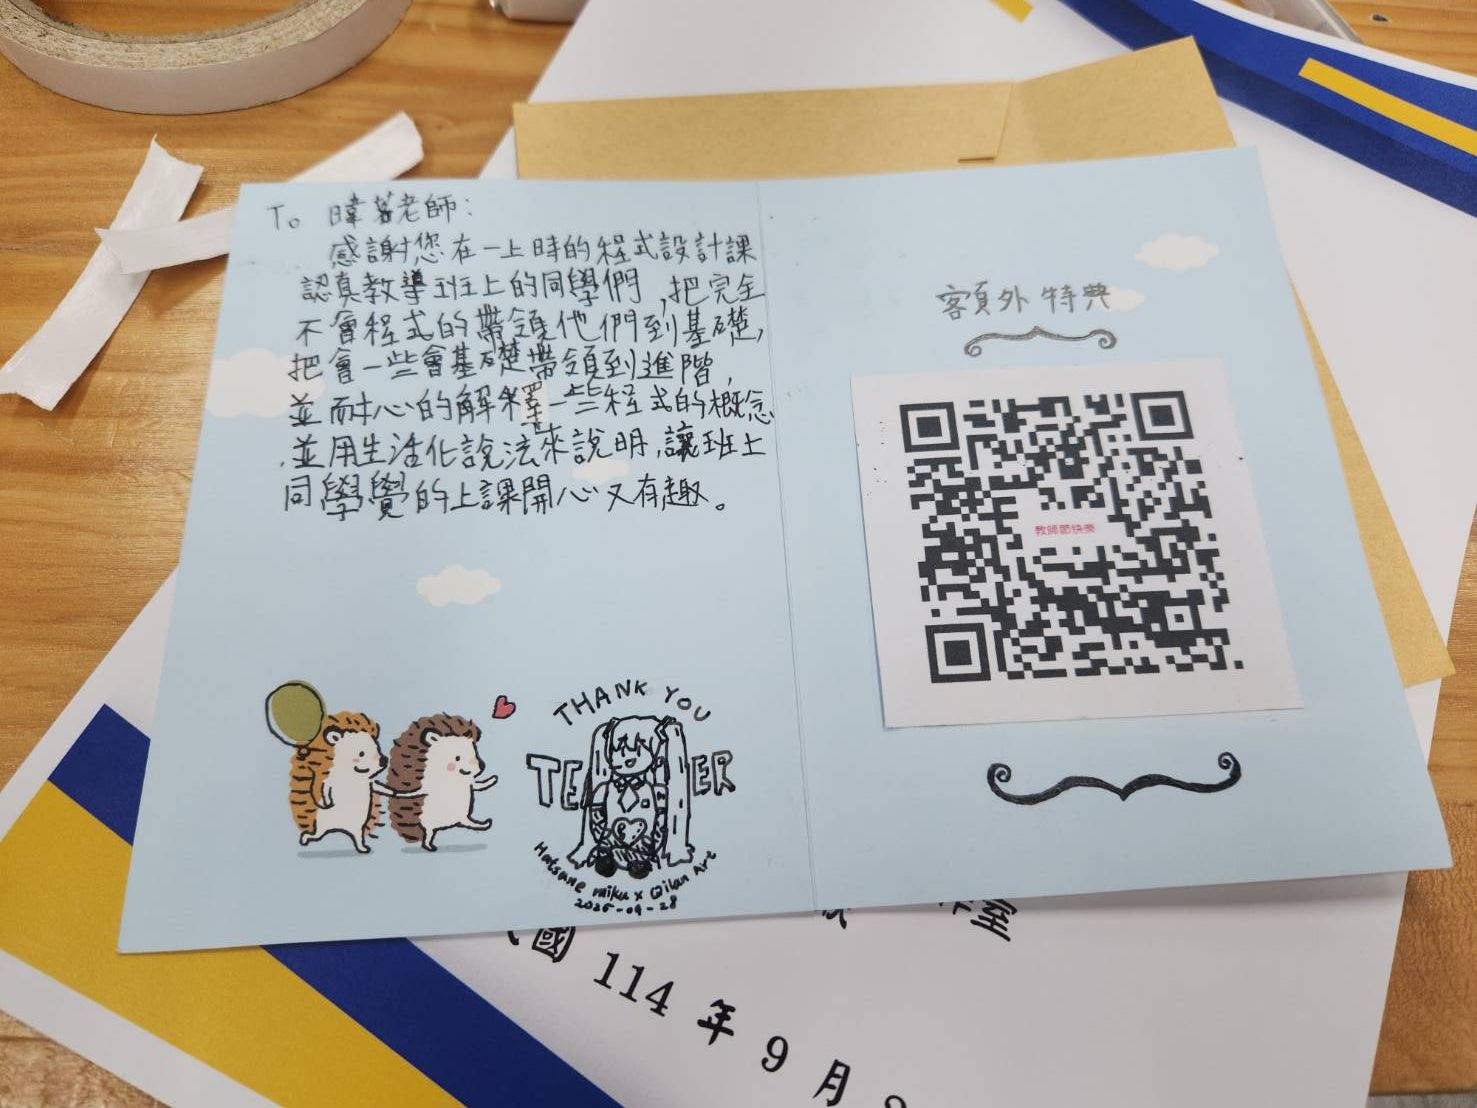 To 暐茗老師:
感謝您在一上時的程式設計課
認真教導班上的同學們,把完全
不會程式的帶領他們到基礎,
把會一些會基礎帶領到進階,
並耐心的解釋一些程式的概念
,並用生活化說法來說明,讓班上
同學覺的上課開心又有趣。
THANK YOU
TE ER
Hatsune miku x Qilan Art
2025-09-28
額外特典
教師節快樂
國 114 年 9 月
室